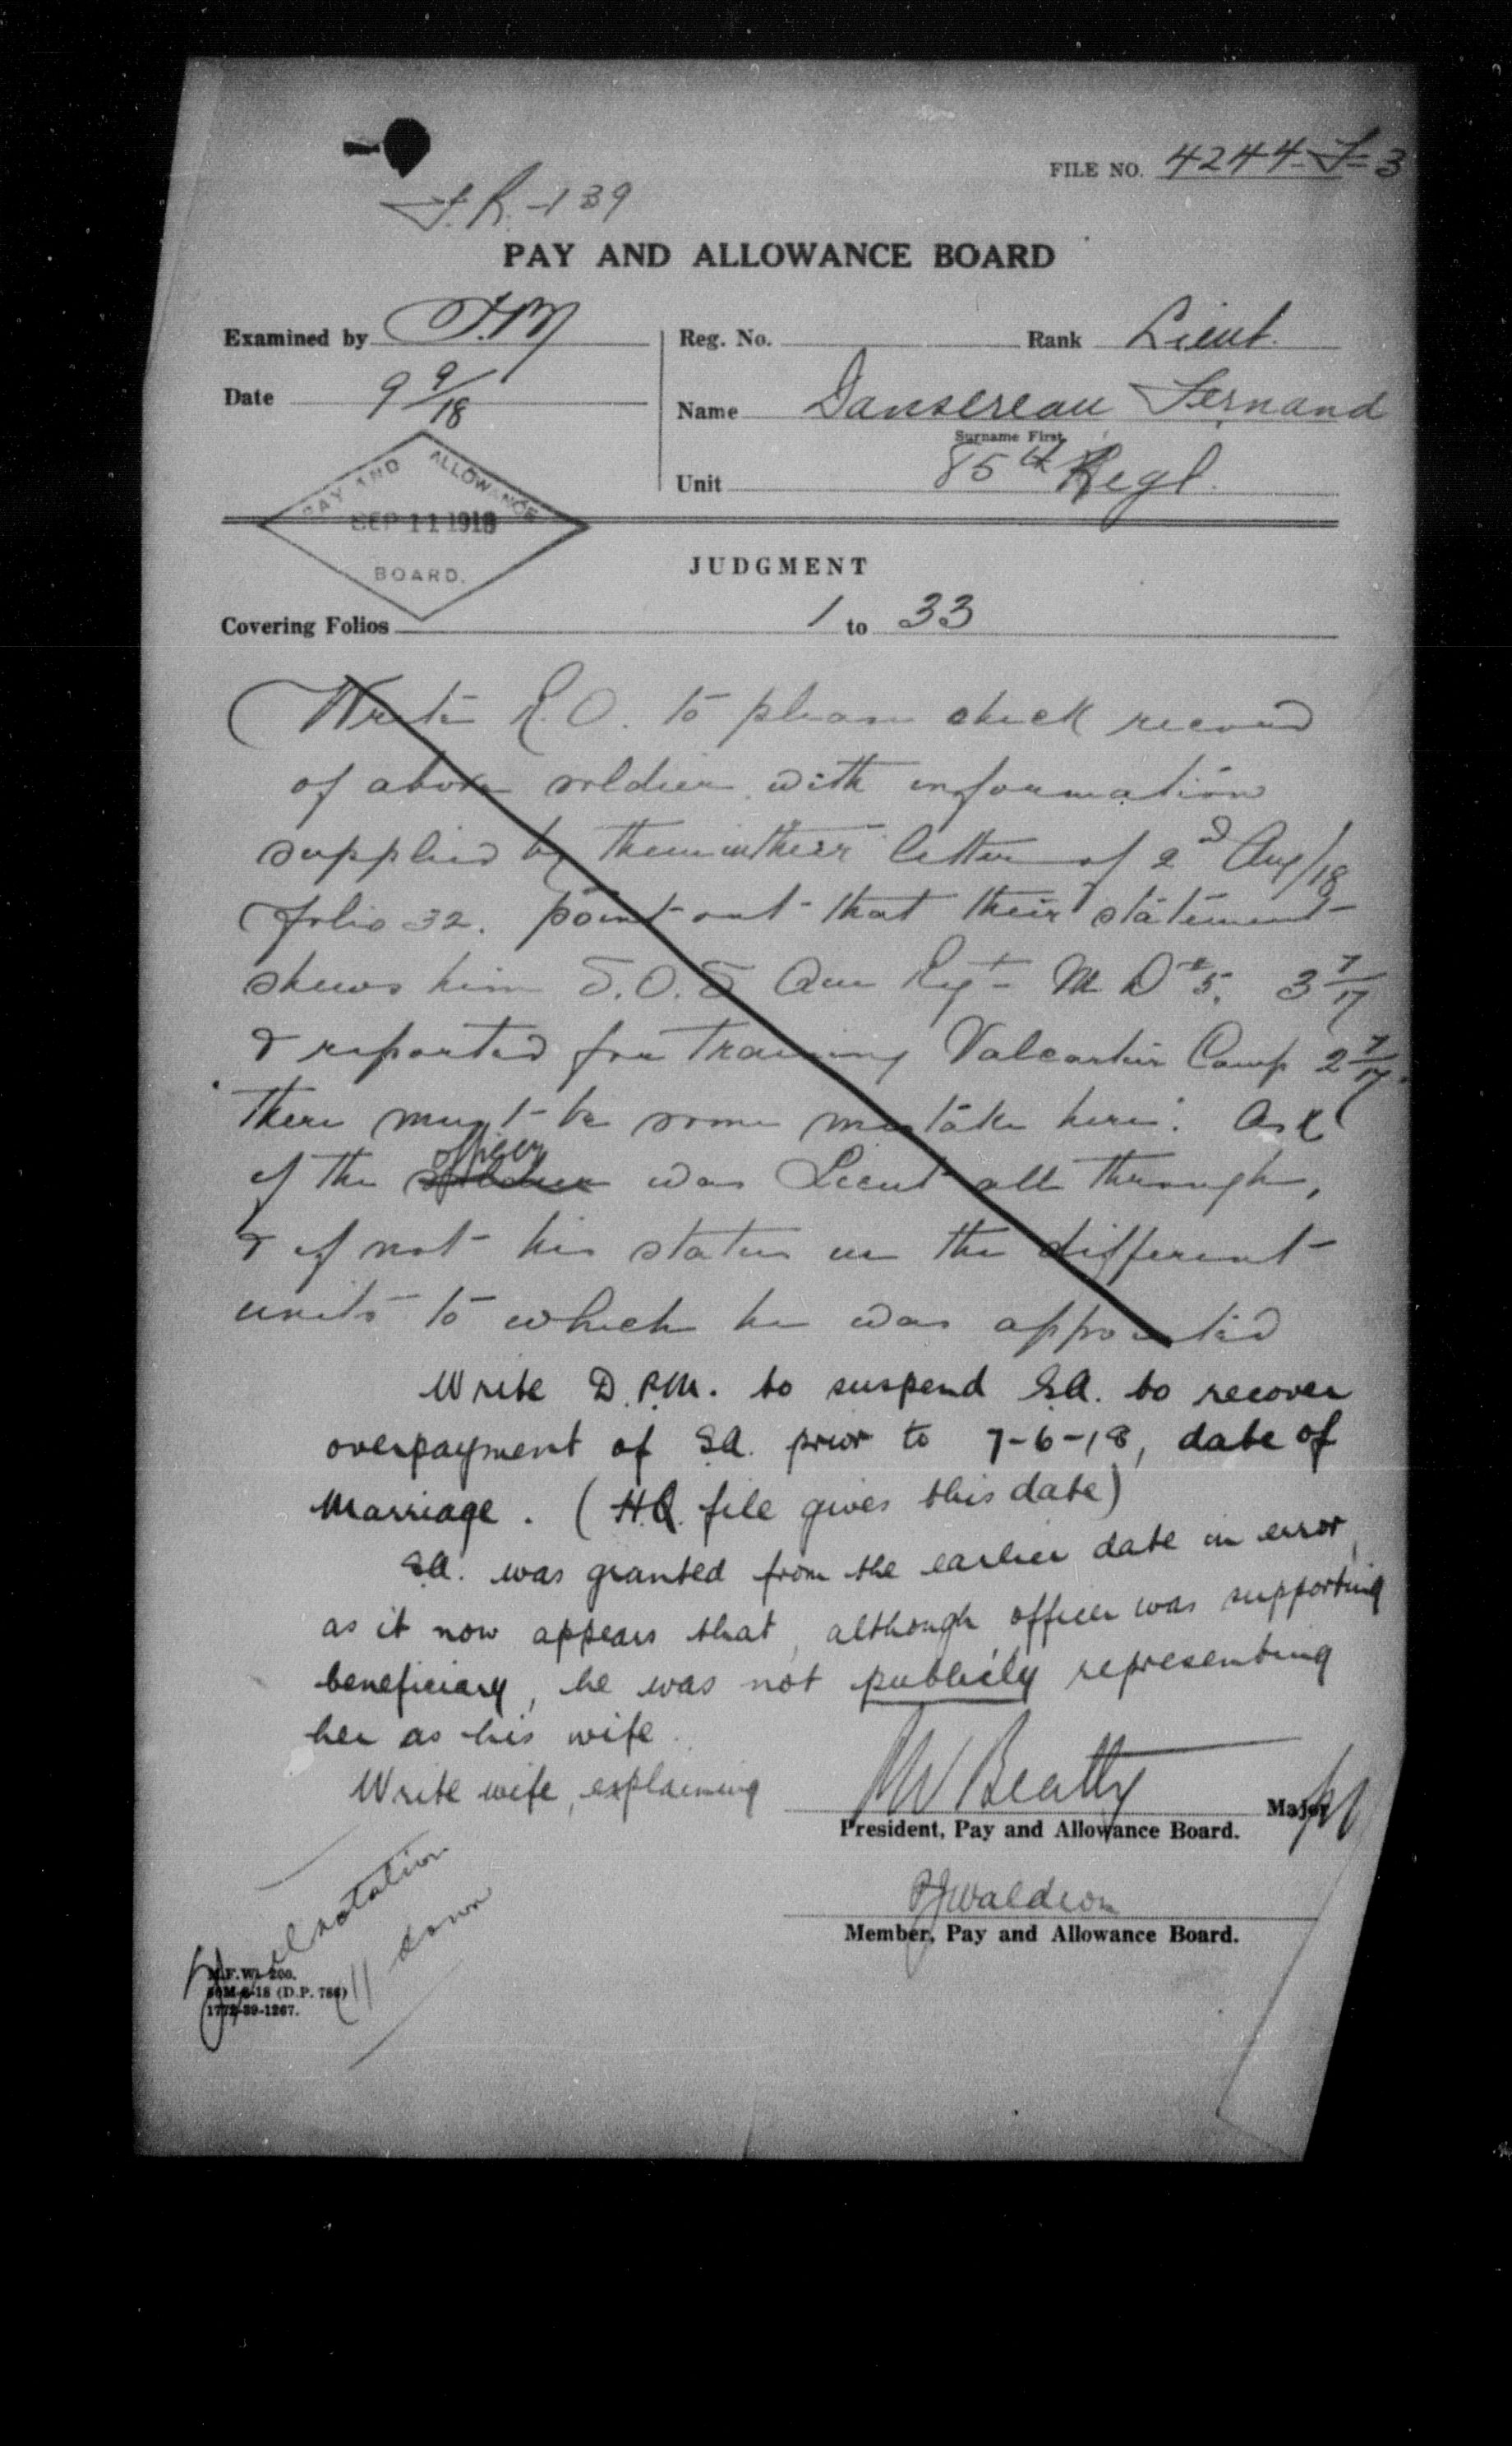 FILE NO. 4244-F-3
F.R.-139
PAY AND ALLOWANCE BOARD
Examined by F.M
Reg. No. Rank Lieut.
Date 9 9/18
Name Dansereau Fernand
Surname First
Unit 85th Regt.
PAY AND ALLOWANCE
SEP 11 1918
BOARD.
JUDGMENT
Covering Folios 1 to 33
Write R.O. to please check record
of above soldier with information
supplied by them in their letter of 2nd Aug/18
folio 32. point out that their statement
shews him S.O.S Regt M D #5. 3 7/17
& reported for training Valcartier Camp 2 7/17.
there must be some mistake here. Ask
officer
if the soldier was Lieut all through,
& if not his status in the different
units to which he was appointed
Write D.P.M. to suspend S.A. to recover
overpayment of S.A. prior to 7-6-18, date of
marriage. (H.Q. file gives this date)
S.A. was granted from the earlier date in error,
as it now appears that, although officer was supporting
beneficiary, he was not publicly representing
her as his wife.
Write wife, explaining
W Beatty
Major
President, Pay and Allowance Board.
Waldron
Member, Pay and Allowance Board.
notation
down
M.F.W. 200.
50M-8-18 (D.P. 786)
1772-39-1267.